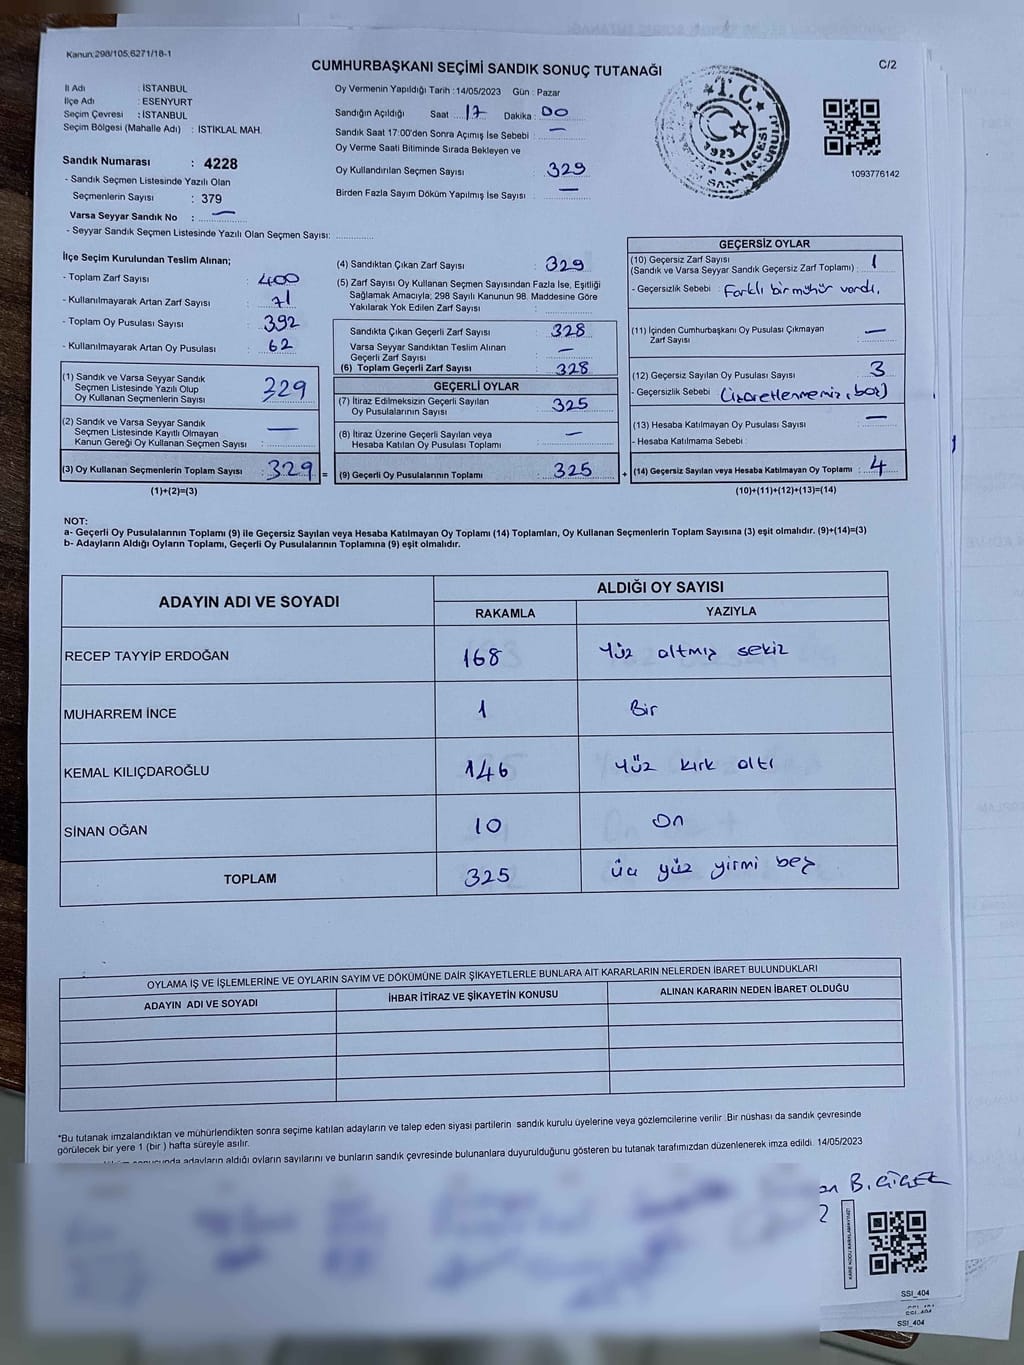 Kanun:298/105,6271/18-1
C/2
CUMHURBAŞKANI SEÇİMİ SANDIK SONUÇ TUTANAĞI
İl Adı : İSTANBUL
İlçe Adı : ESENYURT
Seçim Çevresi : İSTANBUL
Seçim Bölgesi (Mahalle Adı) : ISTIKLAL MAH.
Sandık Numarası : 4228
- Sandık Seçmen Listesinde Yazılı Olan
Seçmenlerin Sayısı : 379
Varsa Seyyar Sandık No : —
- Seyyar Sandık Seçmen Listesinde Yazılı Olan Seçmen Sayısı:
Oy Vermenin Yapıldığı Tarih :14/05/2023 Gün : Pazar
Sandığın Açıldığı Saat 17 Dakika : 00
Sandık Saat 17:00'den Sonra Açımış İse Sebebi : —
Oy Verme Saati Bitiminde Sırada Bekleyen ve
Oy Kullandırılan Seçmen Sayısı : 329
Birden Fazla Sayım Döküm Yapılmış İse Sayısı : —
T.C.
1923
1093776142
İlçe Seçim Kurulundan Teslim Alınan;
- Toplam Zarf Sayısı : 400
- Kullanılmayarak Artan Zarf Sayısı : 71
- Toplam Oy Pusulası Sayısı : 392
- Kullanılmayarak Artan Oy Pusulası : 62
(1) Sandık ve Varsa Seyyar Sandık
Seçmen Listesinde Yazılı Olup
Oy Kullanan Seçmenlerin Sayısı : 329
(2) Sandık ve Varsa Seyyar Sandık
Seçmen Listesinde Kayıtlı Olmayan
Kanun Gereği Oy Kullanan Seçmen Sayısı : —
(3) Oy Kullanan Seçmenlerin Toplam Sayısı : 329 =
(1)+(2)=(3)
(4) Sandıktan Çıkan Zarf Sayısı : 329
(5) Zarf Sayısı Oy Kullanan Seçmen Sayısından Fazla İse, Eşitliği
Sağlamak Amacıyla; 298 Sayılı Kanunun 98. Maddesine Göre
Yakılarak Yok Edilen Zarf Sayısı :
Sandıkta Çıkan Geçerli Zarf Sayısı : 328
Varsa Seyyar Sandıktan Teslim Alınan
Geçerli Zarf Sayısı : —
(6) Toplam Geçerli Zarf Sayısı : 328
GEÇERLİ OYLAR
(7) İtiraz Edilmeksizin Geçerli Sayılan
Oy Pusulalarının Sayısı : 325
(8) İtiraz Üzerine Geçerli Sayılan veya
Hesaba Katılan Oy Pusulası Toplamı : —
(9) Geçerli Oy Pusulalarının Toplamı : 325 +
GEÇERSİZ OYLAR
(10) Geçersiz Zarf Sayısı
(Sandık ve Varsa Seyyar Sandık Geçersiz Zarf Toplamı) : 1
- Geçersizlik Sebebi : Farklı bir mühür vardı.
(11) İçinden Cumhurbaşkanı Oy Pusulası Çıkmayan
Zarf Sayısı : —
(12) Geçersiz Sayılan Oy Pusulası Sayısı : 3
- Geçersizlik Sebebi : (işaretlenmemiş, boş)
(13) Hesaba Katılmayan Oy Pusulası Sayısı : —
- Hesaba Katılmama Sebebi :
(14) Geçersiz Sayılan veya Hesaba Katılmayan Oy Toplamı : 4
(10)+(11)+(12)+(13)=(14)
NOT:
a- Geçerli Oy Pusulalarının Toplamı (9) ile Geçersiz Sayılan veya Hesaba Katılmayan Oy Toplamı (14) Toplamları, Oy Kullanan Seçmenlerin Toplam Sayısına (3) eşit olmalıdır. (9)+(14)=(3)
b- Adayların Aldığı Oyların Toplamı, Geçerli Oy Pusulalarının Toplamına (9) eşit olmalıdır.
ADAYIN ADI VE SOYADI
ALDIĞI OY SAYISI
RAKAMLA YAZIYLA
RECEP TAYYİP ERDOĞAN 168 Yüz altmış sekiz
MUHARREM İNCE 1 Bir
KEMAL KILIÇDAROĞLU 146 Yüz kırk altı
SİNAN OĞAN 10 On
TOPLAM 325 üç yüz yirmi beş
OYLAMA İŞ VE İŞLEMLERİNE VE OYLARIN SAYIM VE DÖKÜMÜNE DAİR ŞİKAYETLERLE BUNLARA AİT KARARLARIN NELERDEN İBARET BULUNDUKLARI
ADAYIN ADI VE SOYADI İHBAR İTİRAZ VE ŞİKAYETİN KONUSU ALINAN KARARIN NEDEN İBARET OLDUĞU
*Bu tutanak imzalandıktan ve mühürlendikten sonra seçime katılan adayların ve talep eden siyasi partilerin sandık kurulu üyelerine veya gözlemcilerine verilir. Bir nüshası da sandık çevresinde
görülecek bir yere 1 (bir ) hafta süreyle asılır.
adayların aldığı oyların sayılarını ve bunların sandık çevresinde bulunanlara duyurulduğunu gösteren bu tutanak tarafımızdan düzenlenerek imza edildi. 14/05/2023
SSI_404
SSI_404